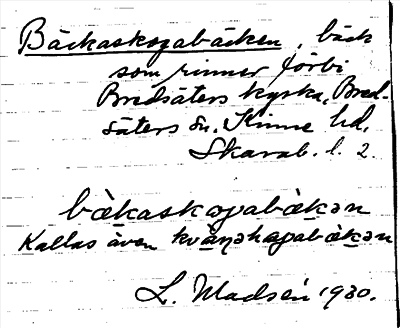 Bäckaskogabäcken, bäck
som rinner förbi
Bredsäters kyrka, Bred-
säters sn. Kinne hd.
Skarab. l. 2.
bäkaskogabäkən
Kallas även kväŋəhagabäkən
L. Madsén 1930.